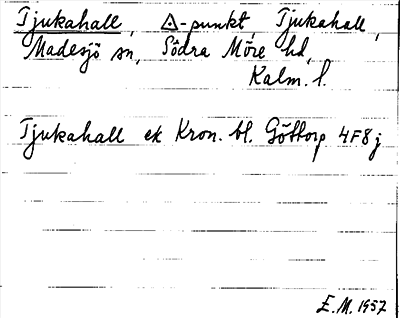 Tjukahall, △-punkt, Tjukahall,
Madesjö sn, Södra Möre hd,
Kalm. l.
Tjukahall ek Kron. bl. Göttorp 4F8j
E.M. 1957